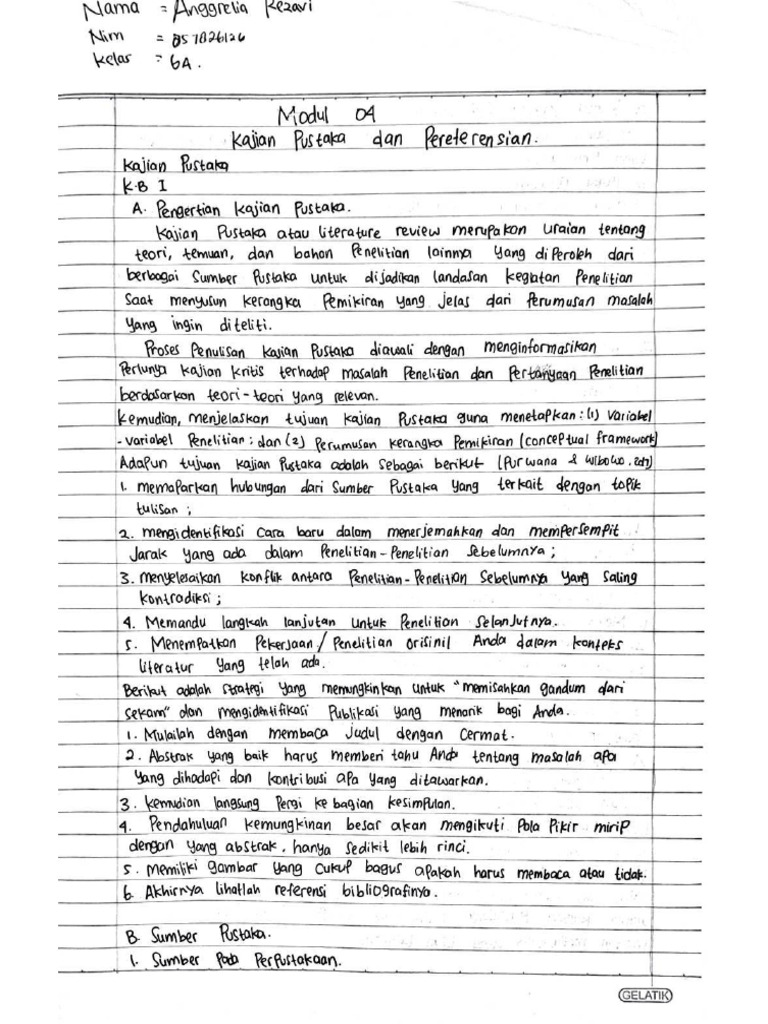 Nama = Anggrelia Rezavi
Nim = 857826126
Kelas = 6A.
Modul 04
Kajian Pustaka dan Pereferensian.
Kajian Pustaka
K.B I
A. Pengertian Kajian Pustaka.
Kajian Pustaka atau literature review merupakan uraian tentang
teori, temuan, dan bahan Penelitian lainnya yang diperoleh dari
berbagai Sumber Pustaka untuk dijadikan landasan kegiatan Penelitian
Saat menyusun kerangka Pemikiran yang jelas dari Perumusan masalah
yang ingin diteliti.
Proses Penulisan Kajian Pustaka diawali dengan menginformasikan
Perlunya kajian kritis terhadap masalah Penelitian dan Pertanyaan Penelitian
berdasarkan teori-teori yang relevan.
Kemudian, menjelaskan tujuan kajian Pustaka guna menetapkan: (1) Variabel
-variabel Penelitian; dan (2) Perumusan kerangka Pemikiran (conceptual framework)
Adapun tujuan kajian Pustaka adalah sebagai berikut (Purwana & Wibowo,
1. memaparkan hubungan dari Sumber Pustaka yang terkait dengan topik
tulisan;
2. mengidentifikasi cara baru dalam menerjemahkan dan mempersempit
Jarak yang ada dalam Penelitian-Penelitian Sebelumnya;
3. menyelesaikan konflik antara Penelitian-Penelitian Sebelumnya yang saling
kontradiksi;
4. Memandu langkah lanjutan untuk Penelition Selanjutnya.
5. Menempatkan Pekerjaan/Penelitian orisinil Anda dalam konteks
literatur yang telah ada.
Berikut adalah strategi yang memungkinkan untuk "memisahkan gandum dari
sekam" dan mengidentifikasi Publikasi yang menarik bagi Anda.
1. Mulailah dengan membaca judul dengan Cermat.
2. Abstrak yang baik harus memberi tahu Anda tentang masalah apa
yang dihadapi dan kontribusi apa yang ditawarkan.
3. Kemudian langsung Pergi ke bagian kesimpulan.
4. Pendahuluan kemungkinan besar akan mengikuti Pola Pikir mirip
dengan yang abstrak, hanya sedikit lebih rinci.
5. Memiliki gambar yang cukup bagus apakah harus membaca atau tidak.
6. Akhirnya lihatlah referensi bibliografinya.
B. Sumber Pustaka.
1. Sumber Pada Perpustakaan.
GELATIK